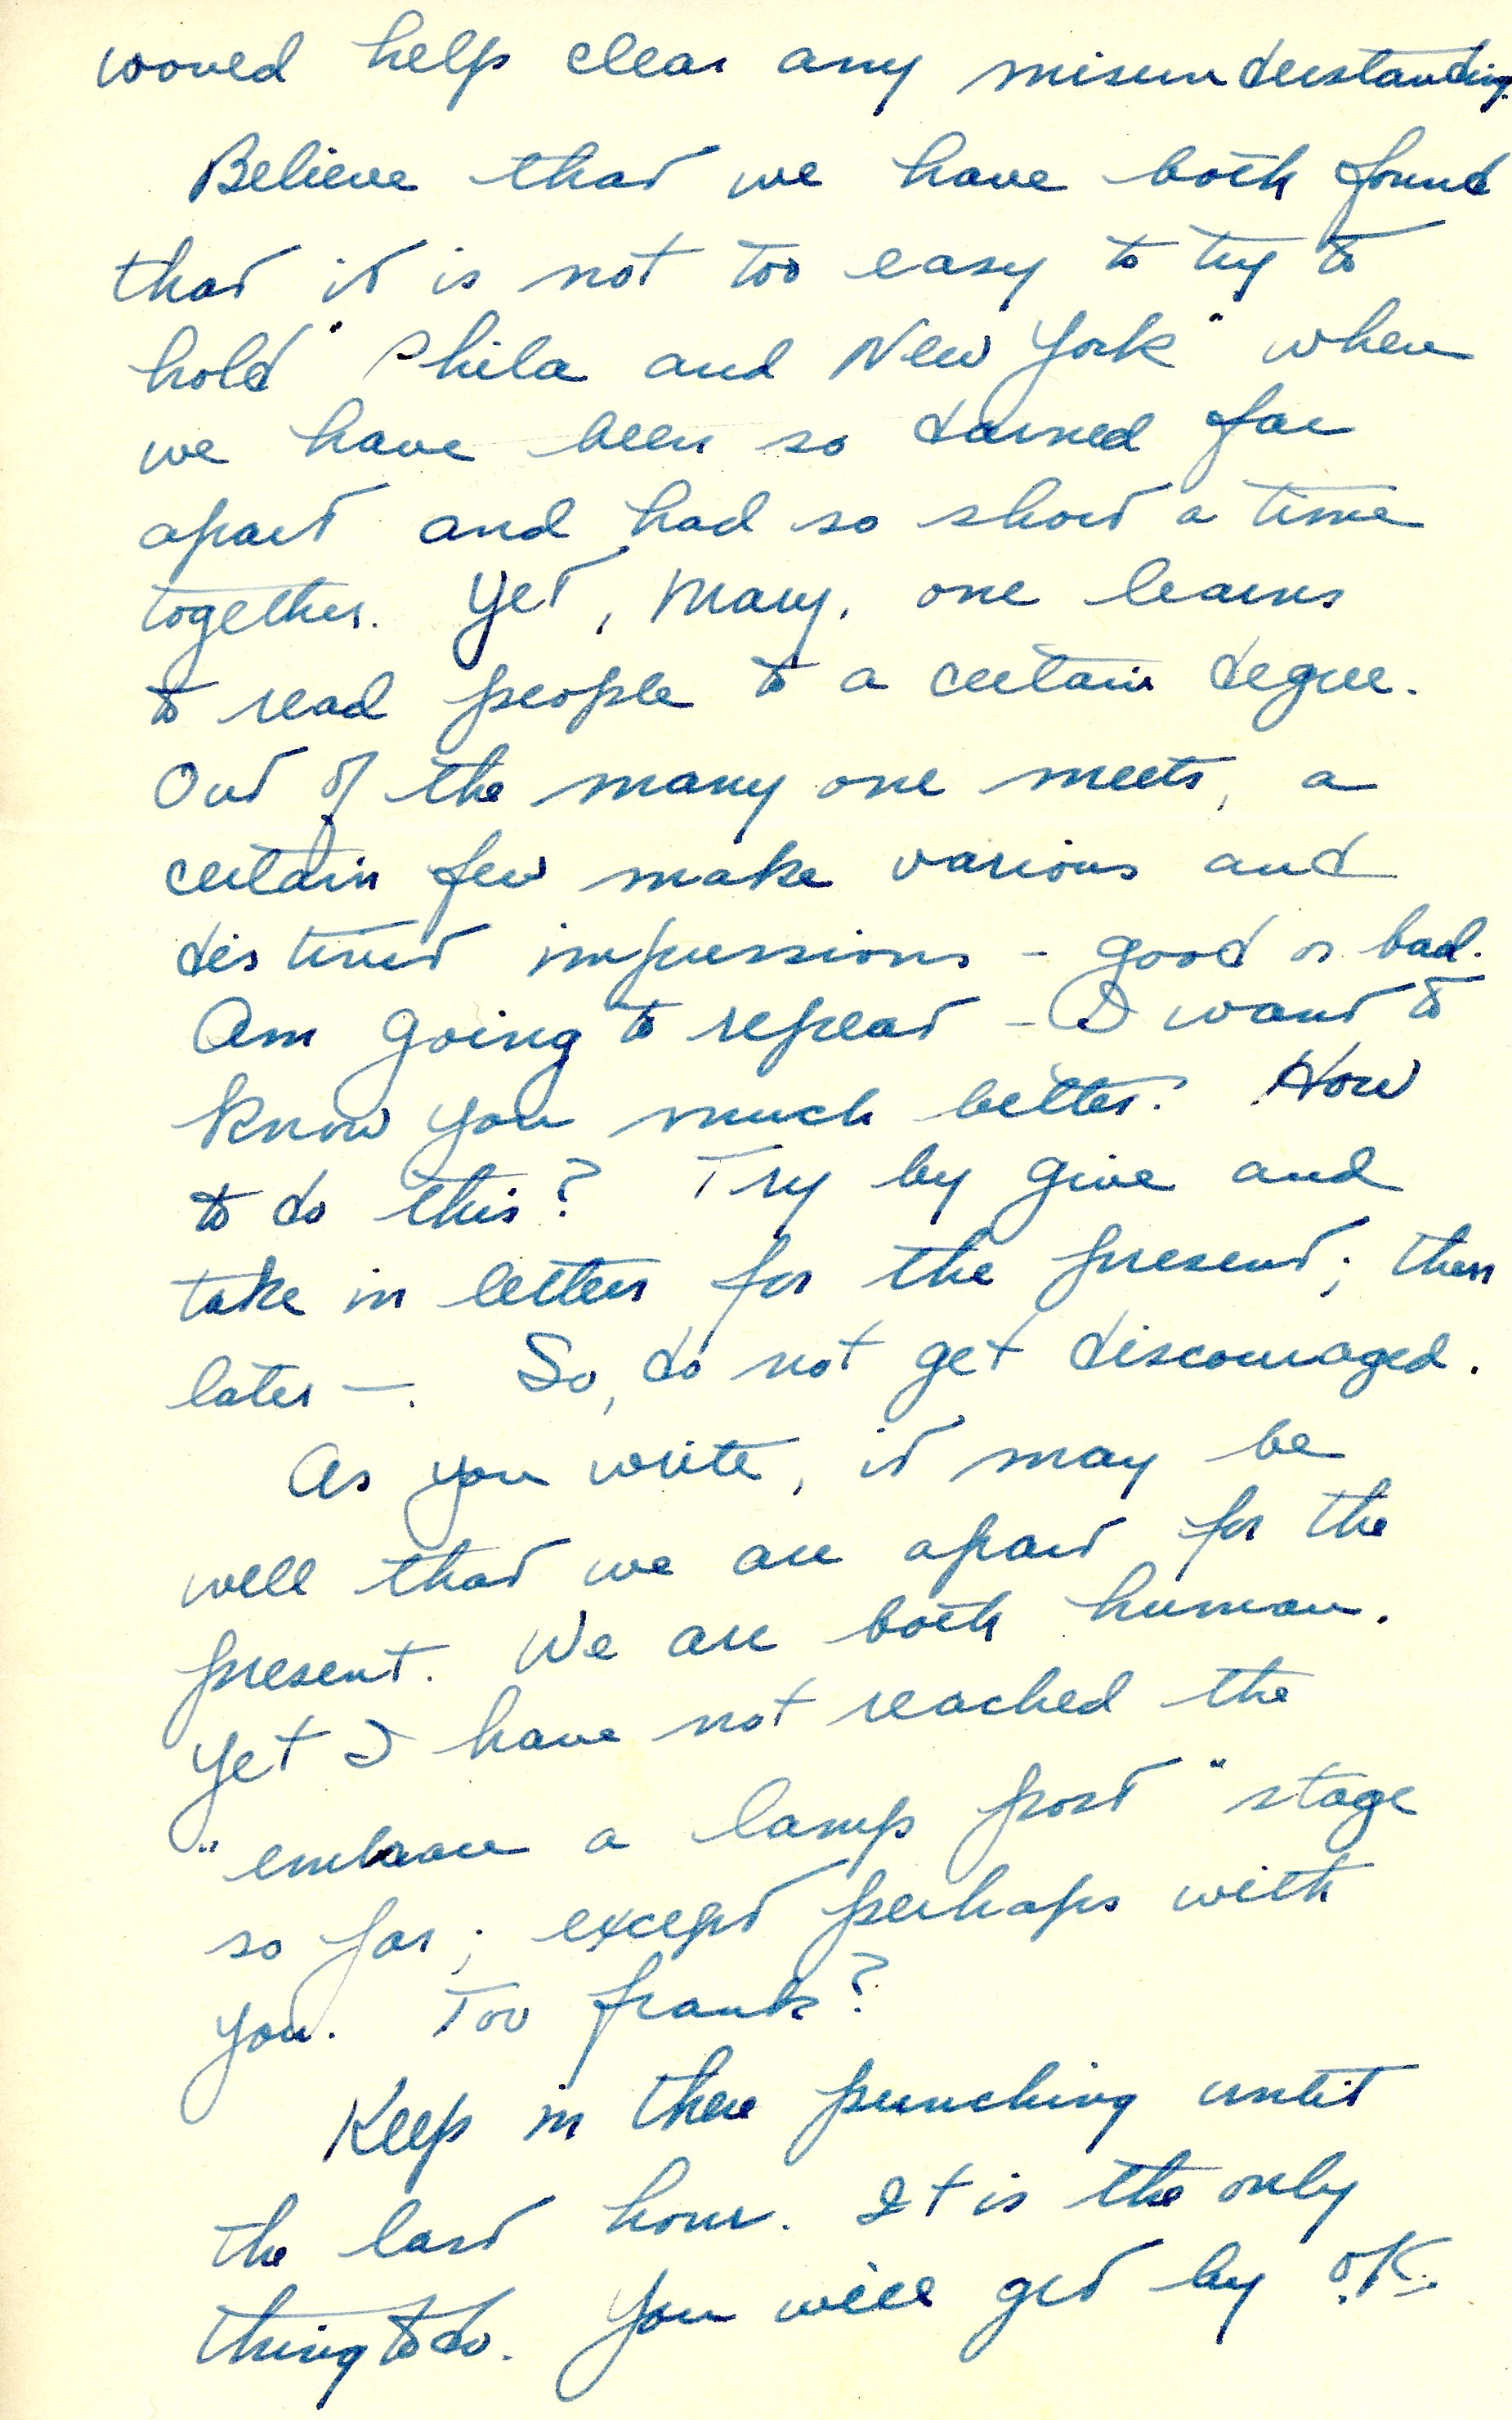 would help clear any misunderstanding.
Believe that we have both found
that it is not too easy to try to
hold "Phila and New York" when
we have been so darned far
apart and had so short a time
together. Yet, Mary, one learns
to read people to a certain degree.
Out of the many one meets, a
certain few make various and
distinct impressions - good or bad.
Am going to repeat - I want to
know you much better. How
to do this? Try by give and
take in letters for the present; then
later —. So, do not get discouraged.
As you write, it may be
well that we are apart for the
present. We are both human.
Yet I have not reached the
"embrace a lamp post" stage
so far; except perhaps with
you. Too frank?
Keep in there punching until
the last hour. It is the only
thing to do. You will get by O.K.